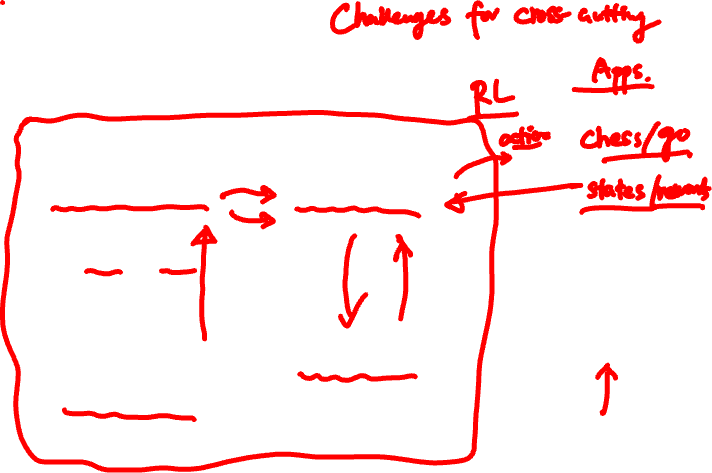 Challenges for cross-cutting
Apps.
RL
action
Chess/go
states/rewards